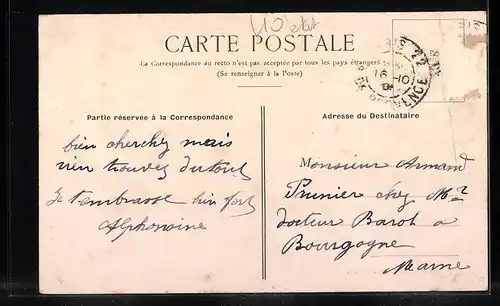 CARTE POSTALE
La Correspondance au recto n'est pas acceptée par tous les pays étrangers
(Se renseigner à la Poste)
Partie réservée à la Correspondance
bien cherchez mais
rien trouvez du tout
Je t'embrasse bien fort
Alphonsine
Adresse du Destinataire
Monsieur Armand
Prunier chez Mr
docteur Barot a
Bourgogne
Marne